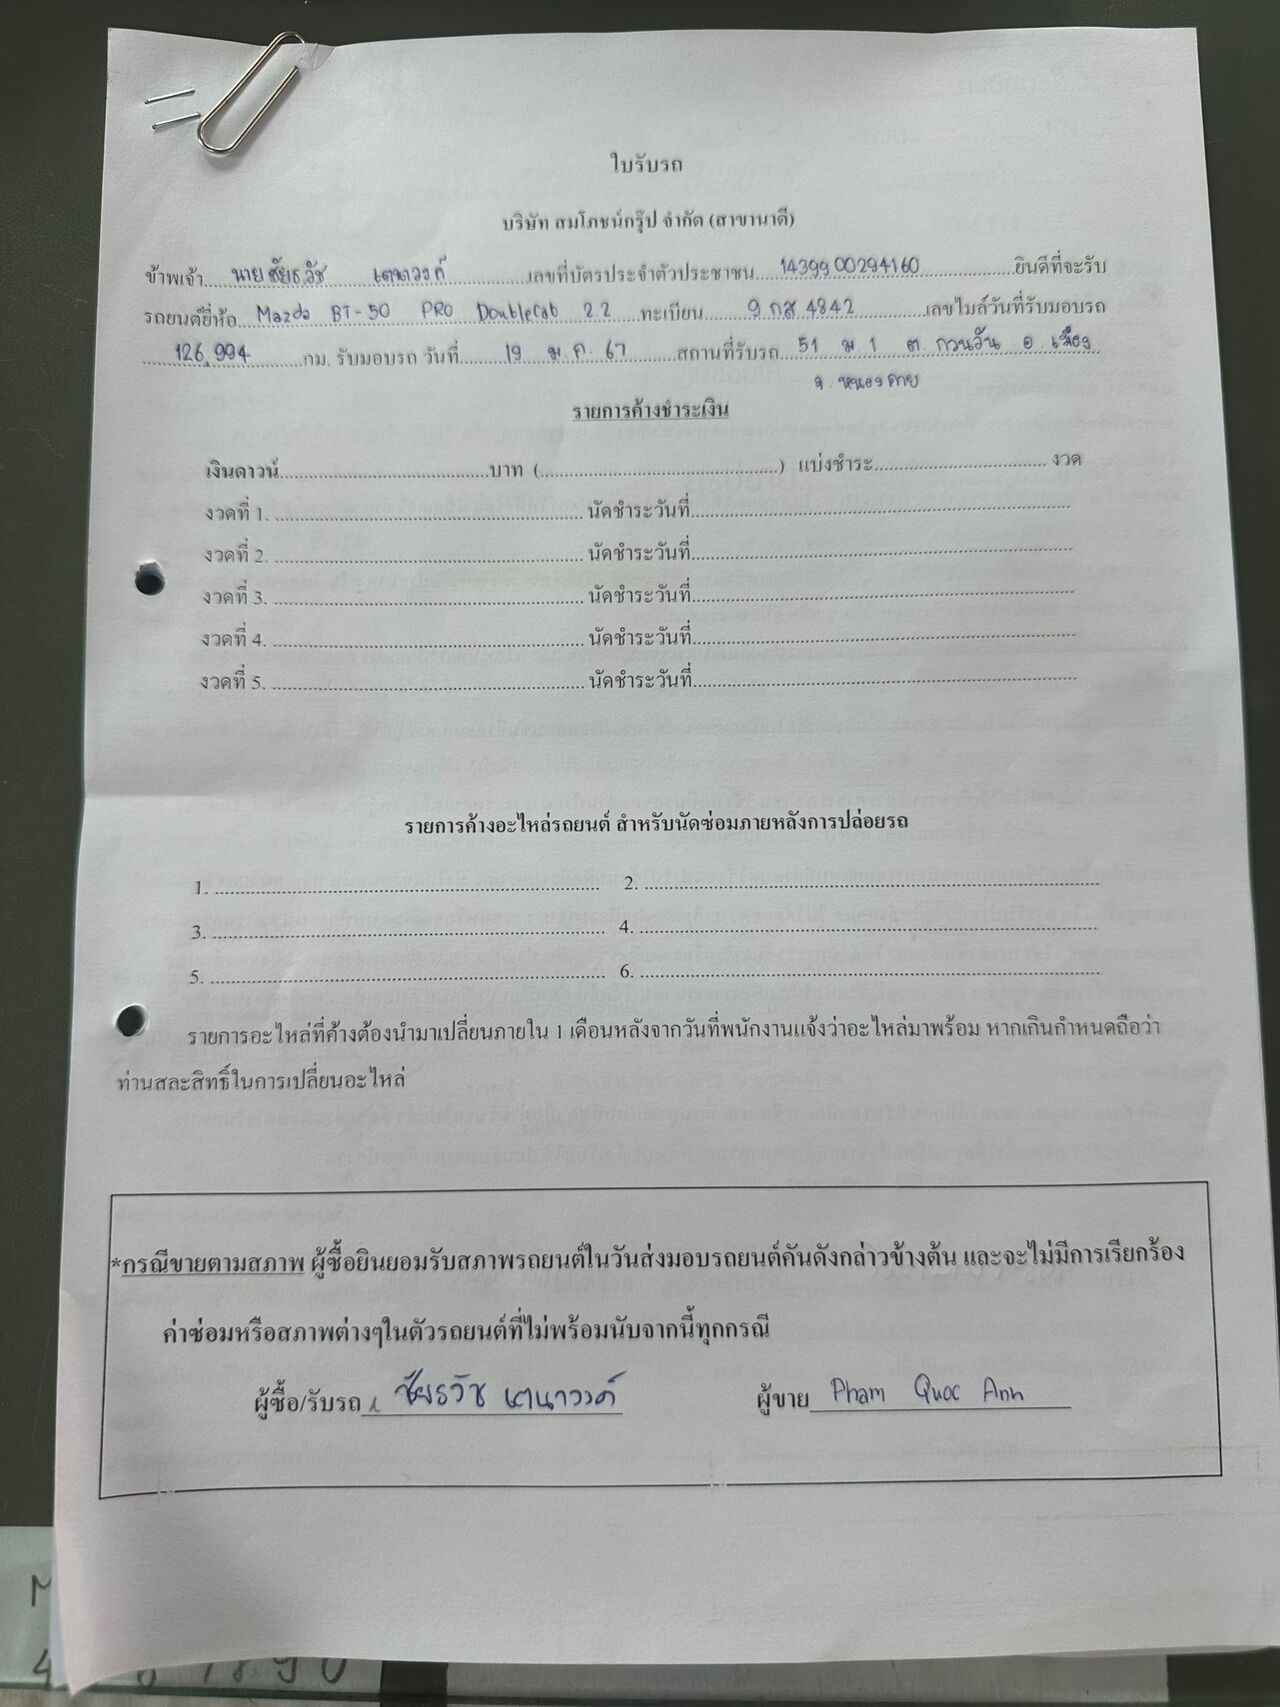 ใบรับรถ
บริษัท สมโภชน์กรุ๊ป จำกัด (สาขานาดี)
ข้าพเจ้า....นายชัยธวัช เตนาวงค์....เลขที่บัตรประจำตัวประชาชน....1439900294160....ยินดีที่จะรับ
รถยนต์ยี่ห้อ..Mazda BT-50 PRO DoubleCab 2.2..ทะเบียน....9 กส 4842....เลขไมล์วันที่รับมอบรถ
....126,994....กม. รับมอบรถ วันที่....19 ม.ค. 67....สถานที่รับรถ..51 ม 1 ต. กวนวัน อ เมือง
จ. หนองคาย
รายการค้างชำระเงิน
เงินดาวน์....................บาท (....................) แบ่งชำระ....................งวด
งวดที่ 1. ....................นัดชำระวันที่....................
งวดที่ 2. ....................นัดชำระวันที่....................
งวดที่ 3. ....................นัดชำระวันที่....................
งวดที่ 4. ....................นัดชำระวันที่....................
งวดที่ 5. ....................นัดชำระวันที่....................
รายการค้างอะไหล่รถยนต์ สำหรับนัดซ่อมภายหลังการปล่อยรถ
1. .................... 2. ....................
3. .................... 4. ....................
5. .................... 6. ....................
รายการอะไหล่ที่ค้างต้องนำมาเปลี่ยนภายใน 1 เดือนหลังจากวันที่พนักงานแจ้งว่าอะไหล่มาพร้อม หากเกินกำหนดถือว่า
ท่านสละสิทธิ์ในการเปลี่ยนอะไหล่
*กรณีขายตามสภาพ ผู้ซื้อยินยอมรับสภาพรถยนต์ในวันส่งมอบรถยนต์คันดังกล่าวข้างต้น และจะไม่มีการเรียกร้อง
ค่าซ่อมหรือสภาพต่างๆในตัวรถยนต์ที่ไม่พร้อมนับจากนี้ทุกกรณี
ผู้ซื้อ/รับรถ ชัยธวัช เตนาวงค์ ผู้ขาย Pham Quoc Anh